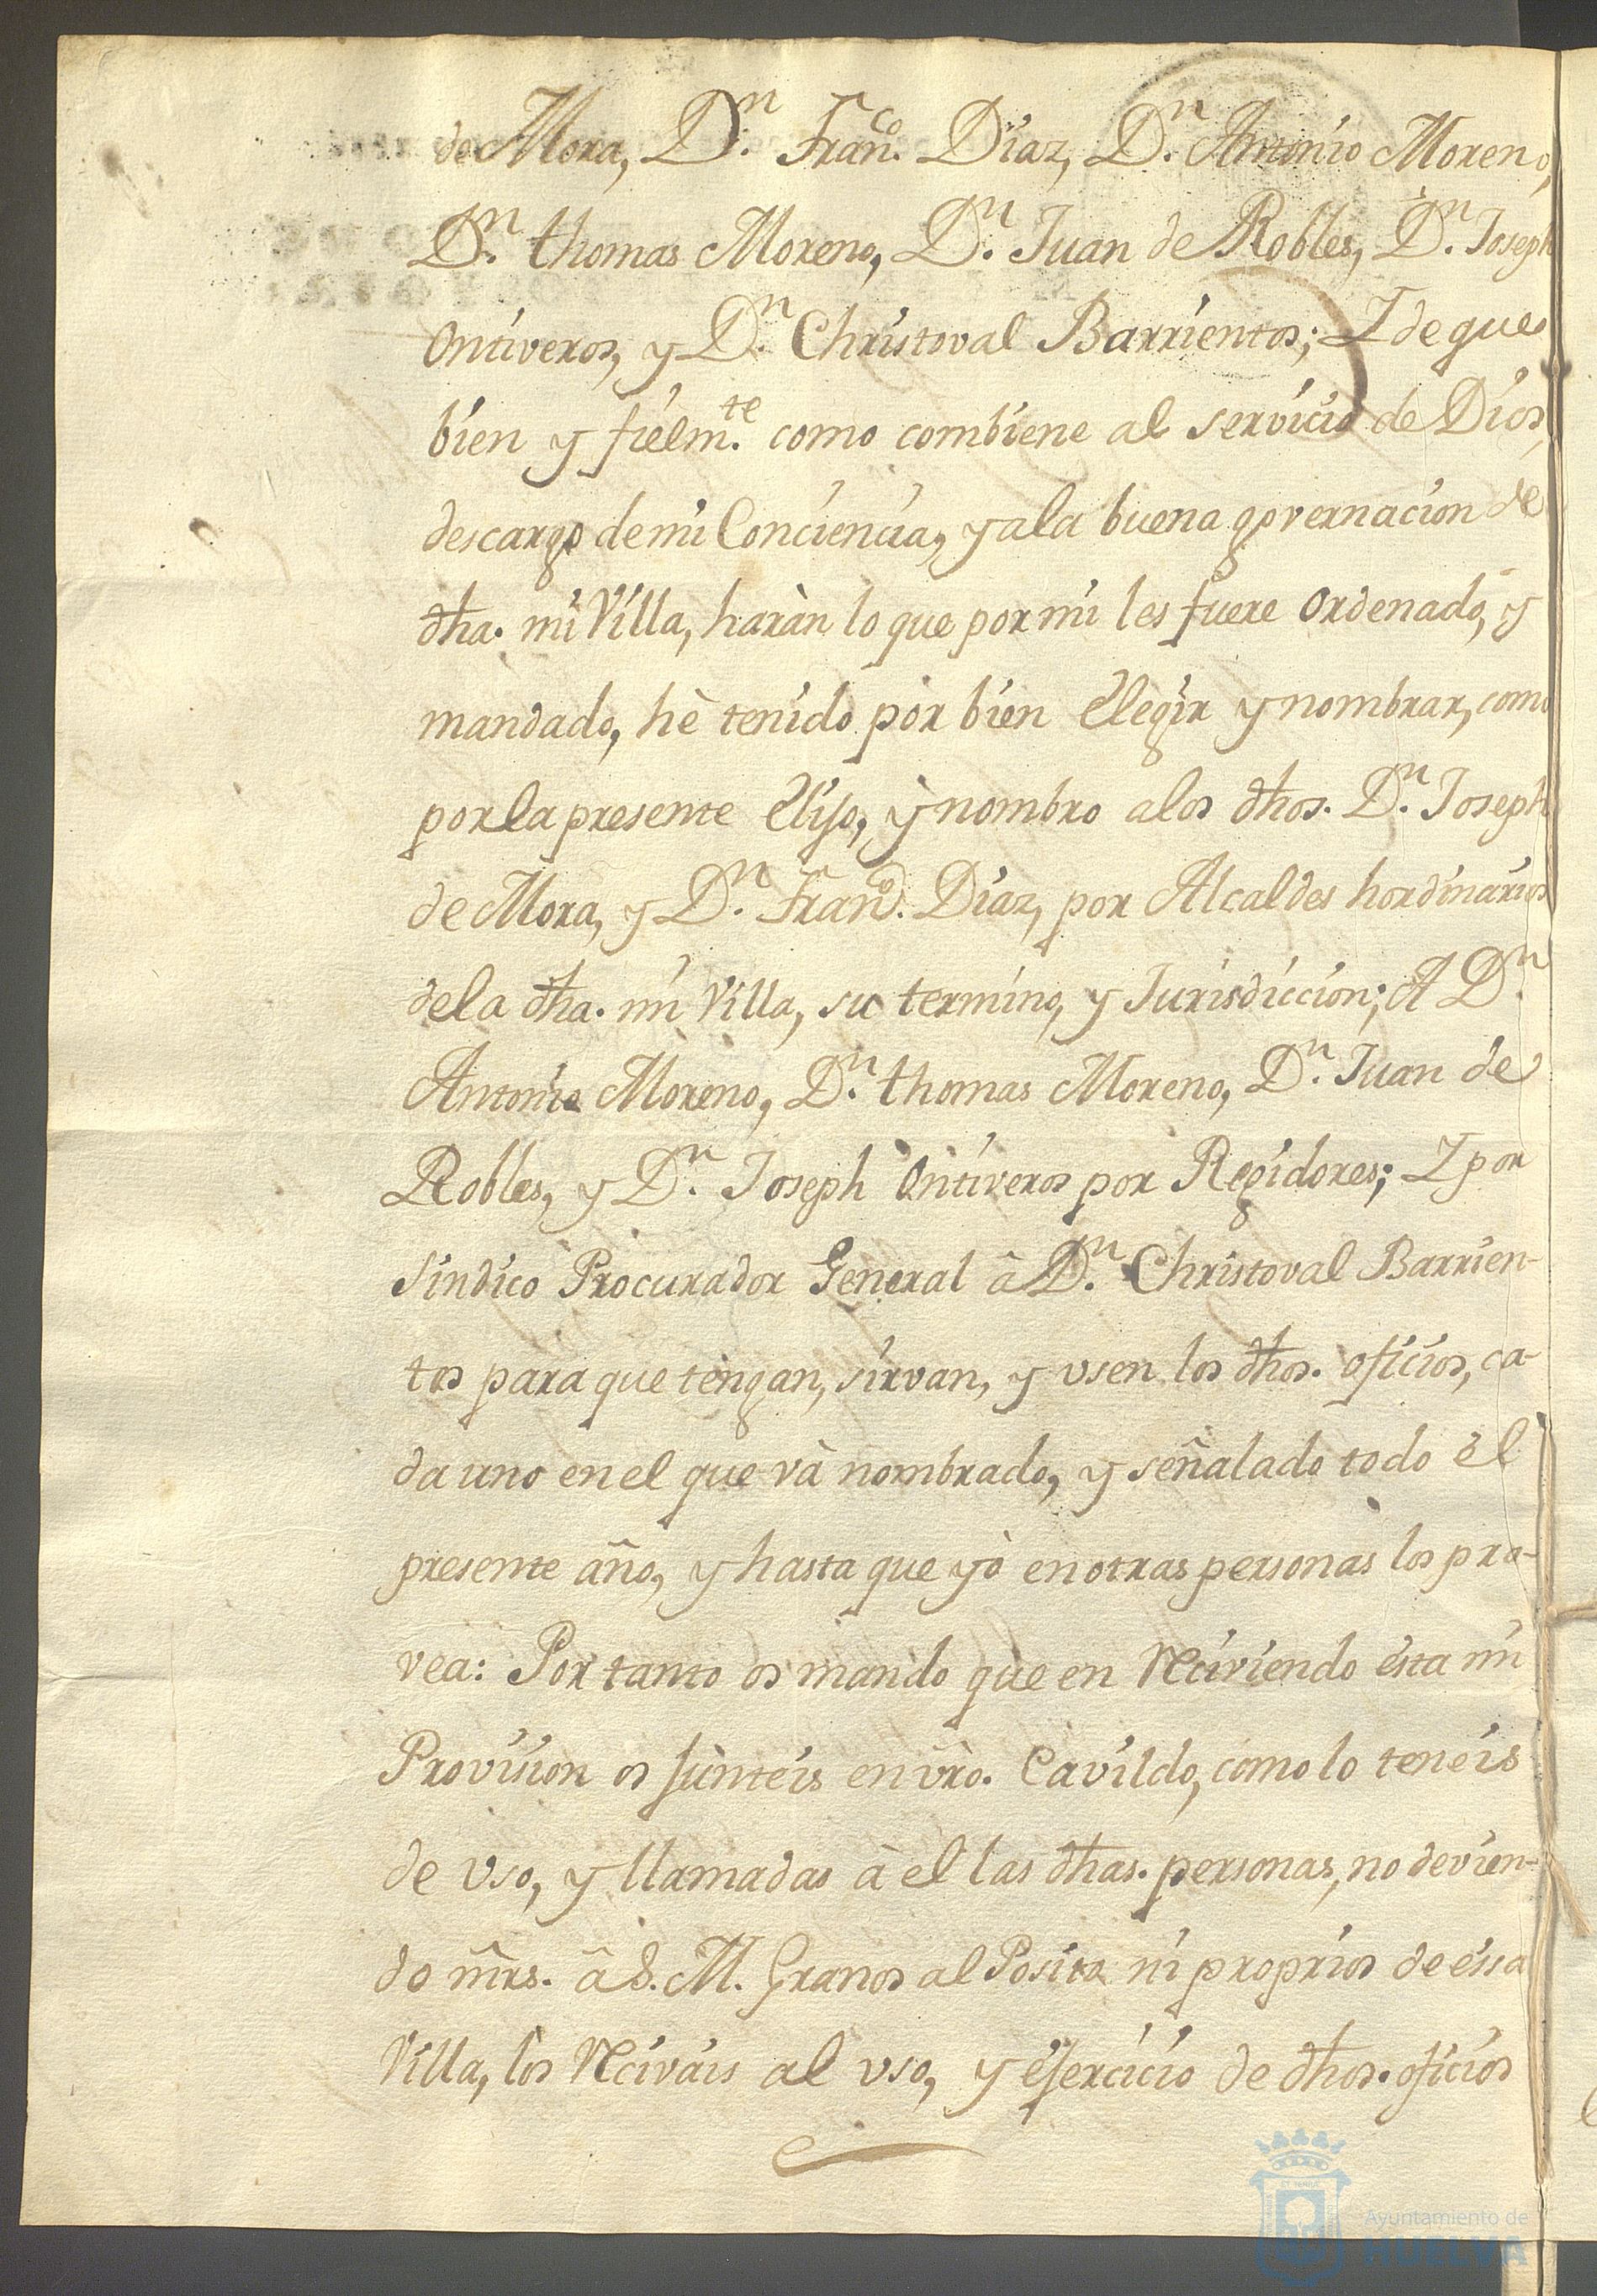 de Mora, D.n Fran.co Diaz, D.n Antonio Moreno,
D.n thomas Moreno, D.n Juan de Robles, D.n Joseph
Ontiveros, y D.n Christoval Barrientos; Y de que
bien y fielm.te como combiene al servicio de Dios,
descargo de mi Conciencia, y a la buena governacion de
dha. mi Villa, haràn lo que por mi les fuere ordenado, y
mandado, hè tenido por bien Elegir y nombrar, como
por la presente Elijo, y nombro a los dhos. D.n Joseph
de Mora, y D.n Fran.co Diaz, por Alcaldes hordinarios
de la dha. mi Villa, su termino, y Jurisdiccion; A D.n
Antonio Moreno, D.n thomas Moreno, D.n Juan de
Robles, y D.n Joseph Ontiveros por Regidores; Y por
Sindico Procurador General â D.n Christoval Barrien-
tos para que tengan, sirvan, y usen los dhos. oficios, ca-
da uno en el que và nombrado, y señalado todo el
presente año, y hasta que yò en otras personas los pro-
vea: Por tanto os mando que en Reciviendo esta mi
Provision os junteis en vro. Cavildo, como lo teneis
de uso, y llamadas à el las dhas. personas, no devien-
do mrs. â S. M. Granos al Posito ni proprios de essa
Villa, los Recivais al uso, y ejercicio de dhos. oficios
Ayuntamiento de
HUELVA